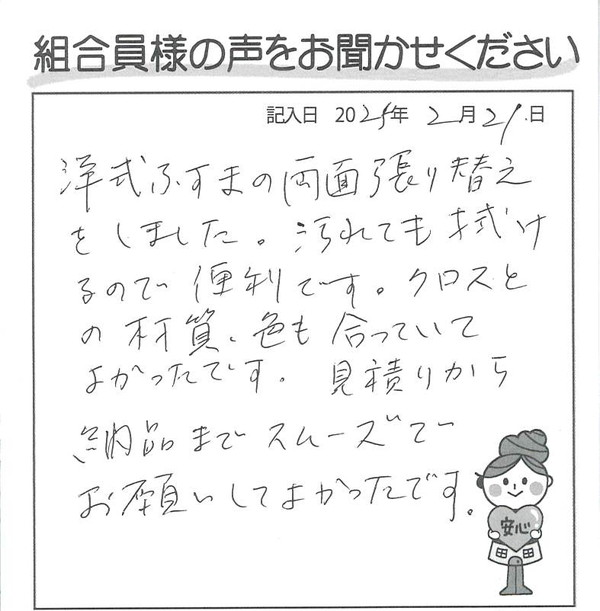 組合員様の声をお聞かせください
記入日 2025年 2月21日
洋式ふすまの両面張り替え
をしました。汚れても拭け
るので便利です。クロスと
の材質、色も合っていて
よかったです。見積りから
納品までスムーズで
お願いしてよかったです。
安心